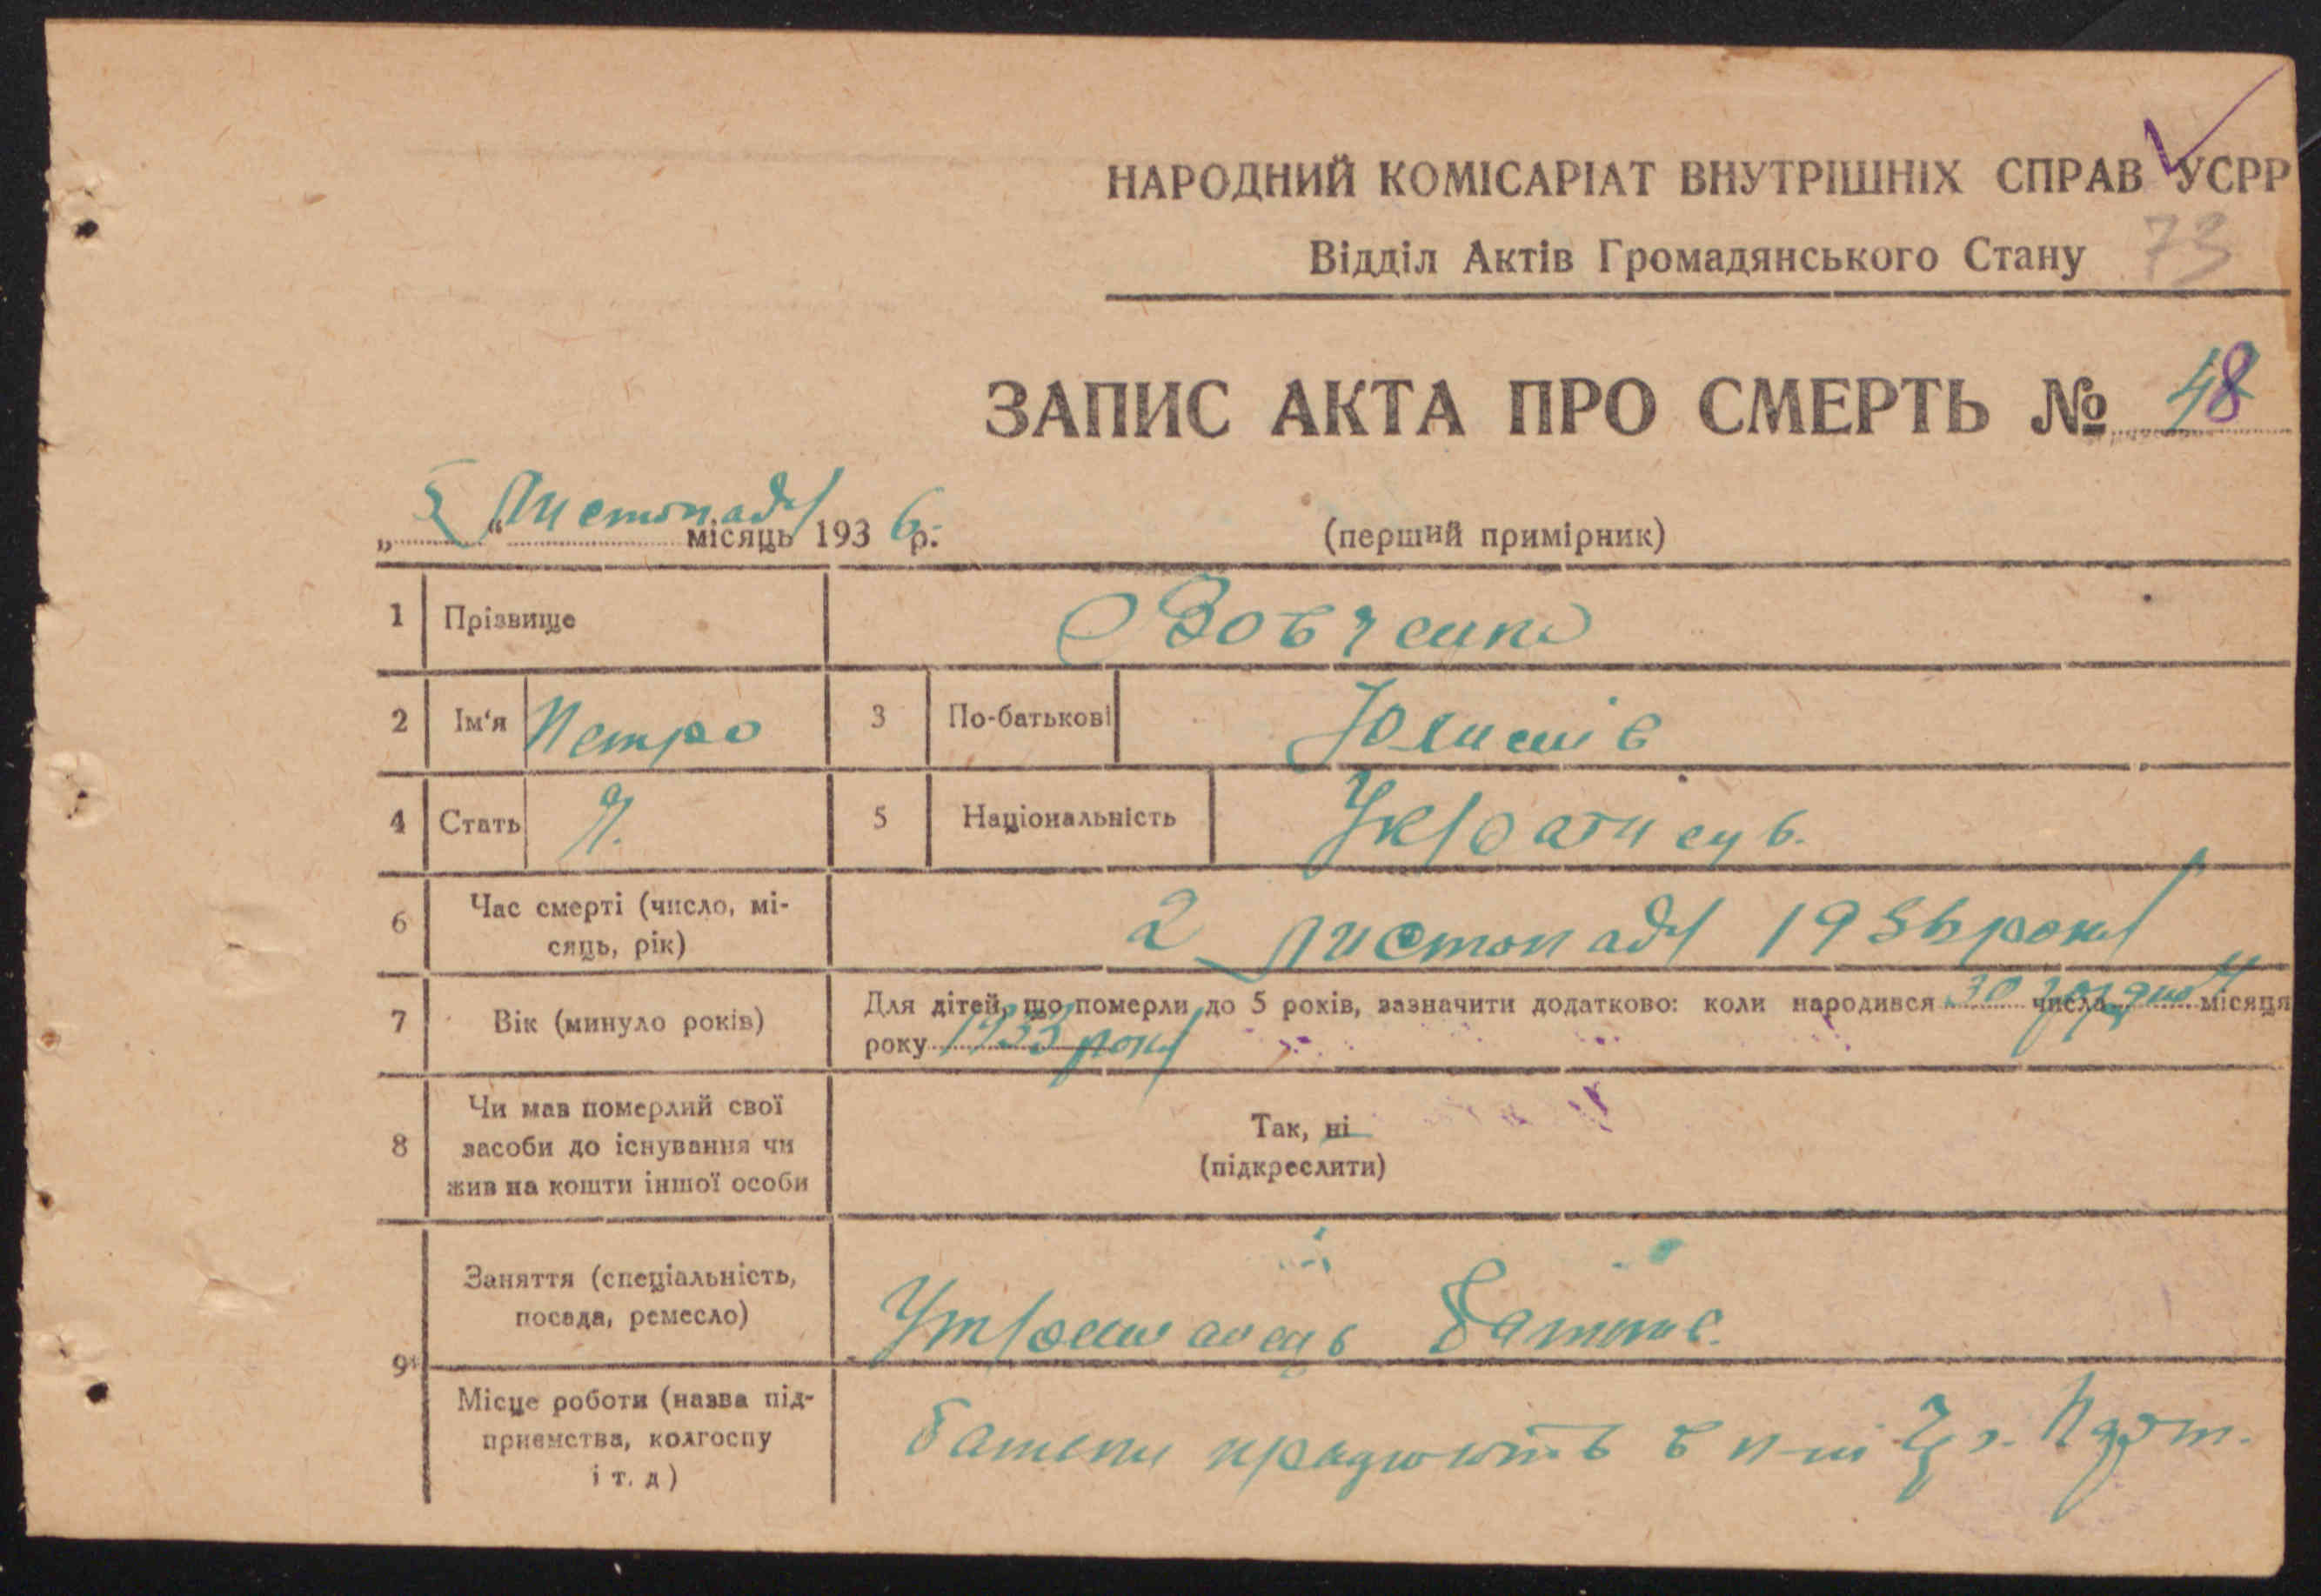 НАРОДНИЙ КОМІСАРІАТ ВНУТРІШНІХ СПРАВ УСРР
Відділ Актів Громадянського Стану 73
ЗАПИС АКТА ПРО СМЕРТЬ № 48
„5“ Листопада місяць 1936 р.
(перший примірник)
1 Прізвище Вовченко
2 Ім‘я Петро 3 По-батькові
4 Стать Ч. 5 Національність
6 Час смерті (число, мі-
сяць, рік) 2 листопада 1936 року
7 Вік (минуло років) Для дітей, що померли до 5 років, зазначити додатково: коли народився 30 числа грудня місяця
року 1935 року
8 Чи мав померлий свої
засоби до існування чи
жив на кошти іншої особи
Так, ні
(підкреслити)
9 Заняття (спеціальність,
посада, ремесло)
Утриманець батьків
Місце роботи (назва під-
приємства, колгоспу
і т. д)
батьки працюють в